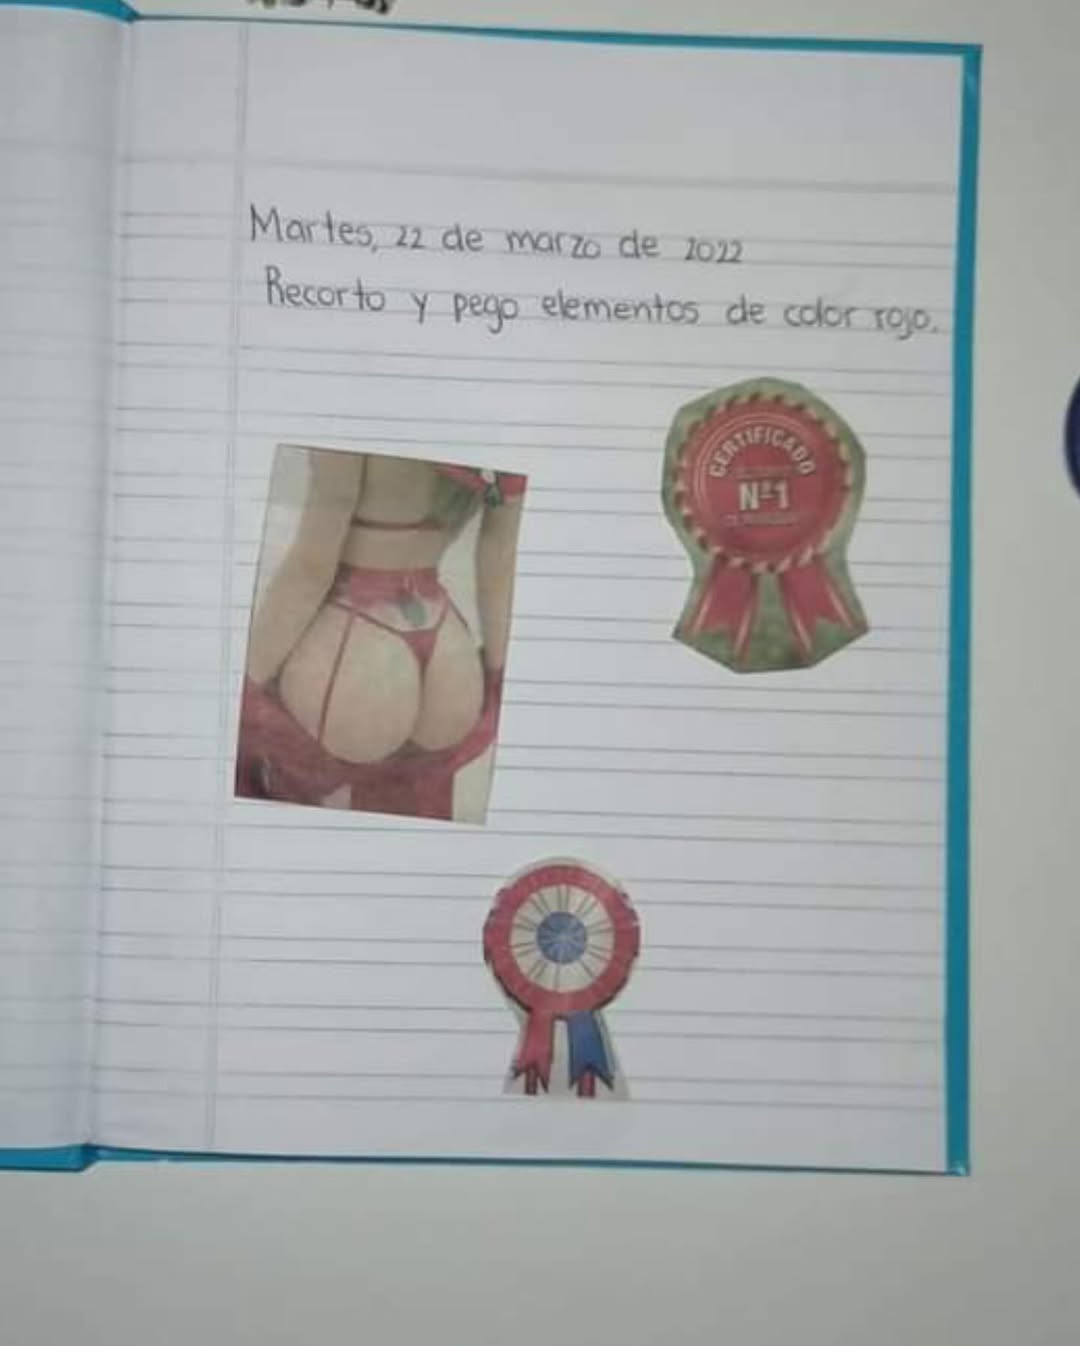 Martes, 22 de marzo de 2022
Recorto y pego elementos de color rojo.
CERTIFICADO
Nº1